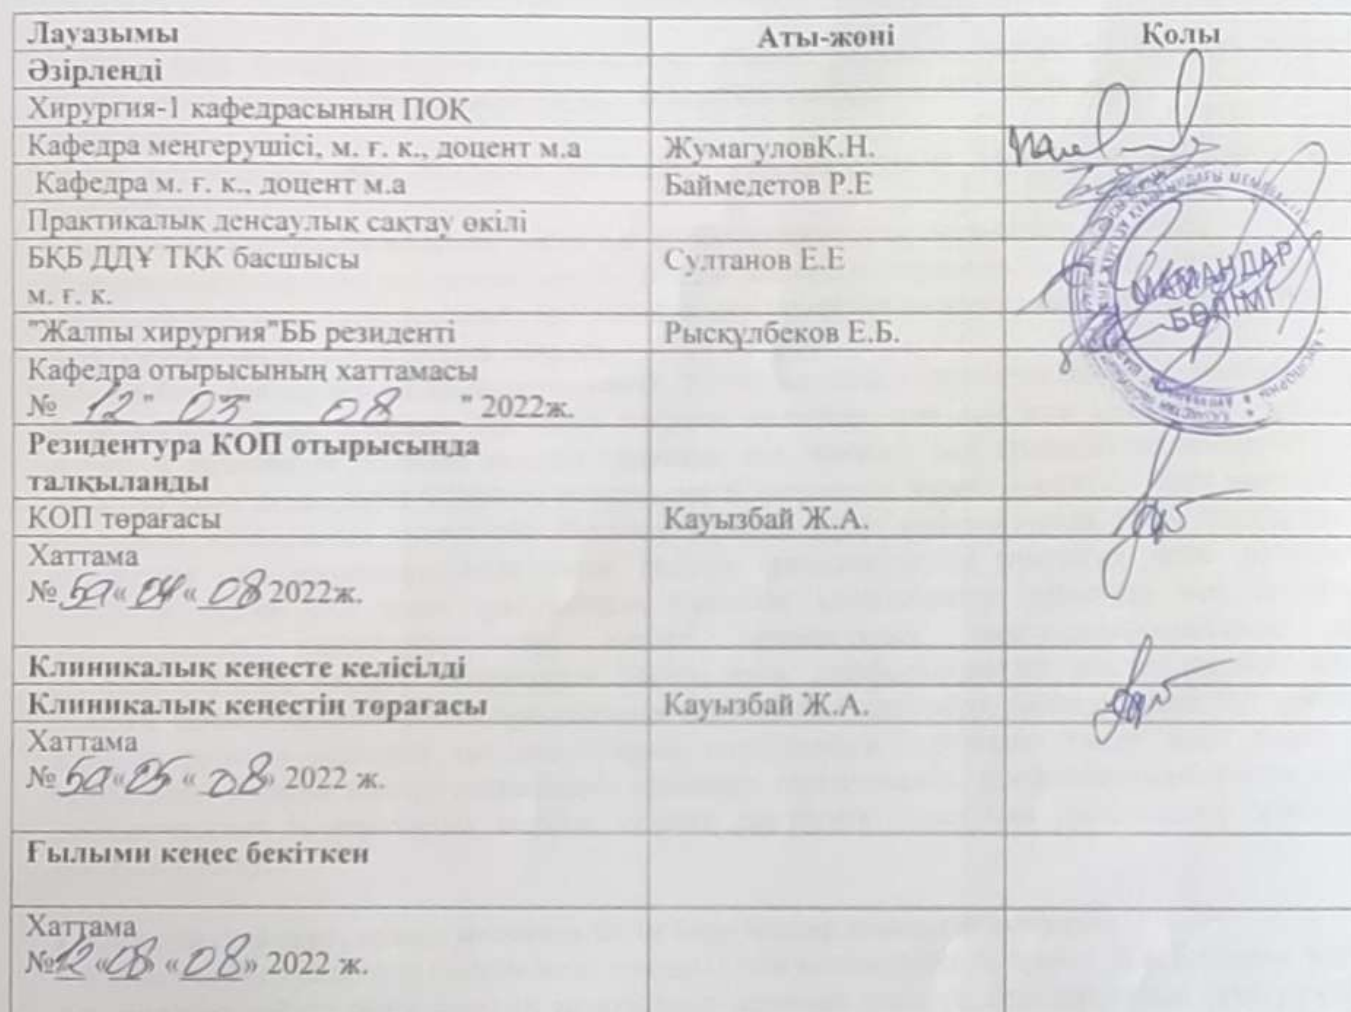 Лауазымы Аты-жөні Қолы
Әзірленді
Хирургия-1 кафедрасының ПОҚ
Кафедра меңгерушісі, м. ғ. к., доцент м.а ЖумагуловК.Н.
Кафедра м. ғ. к., доцент м.а Баймедетов Р.Е
Практикалық денсаулық сақтау өкілі
БҚБ ДДҰ ТҚК басшысы Султанов Е.Е
м. ғ. к.
"Жалпы хирургия"ББ резиденті Рысқұлбеков Е.Б.
МАМАНДАР
БӨЛІМІ
Кафедра отырысының хаттамасы
№ 12 " 03 " 08 " 2022ж.
Резидентура КОП отырысында
талқыланды
КОП төрағасы Кауызбай Ж.А.
Хаттама
№ 5а « 04 « 08 2022ж.
Клиникалық кеңесте келісілді
Клиникалық кеңестің төрағасы Кауызбай Ж.А.
Хаттама
№ 5а «05 « 08» 2022 ж.
Ғылыми кеңес бекіткен
Хаттама
№12 «08» «08» 2022 ж.